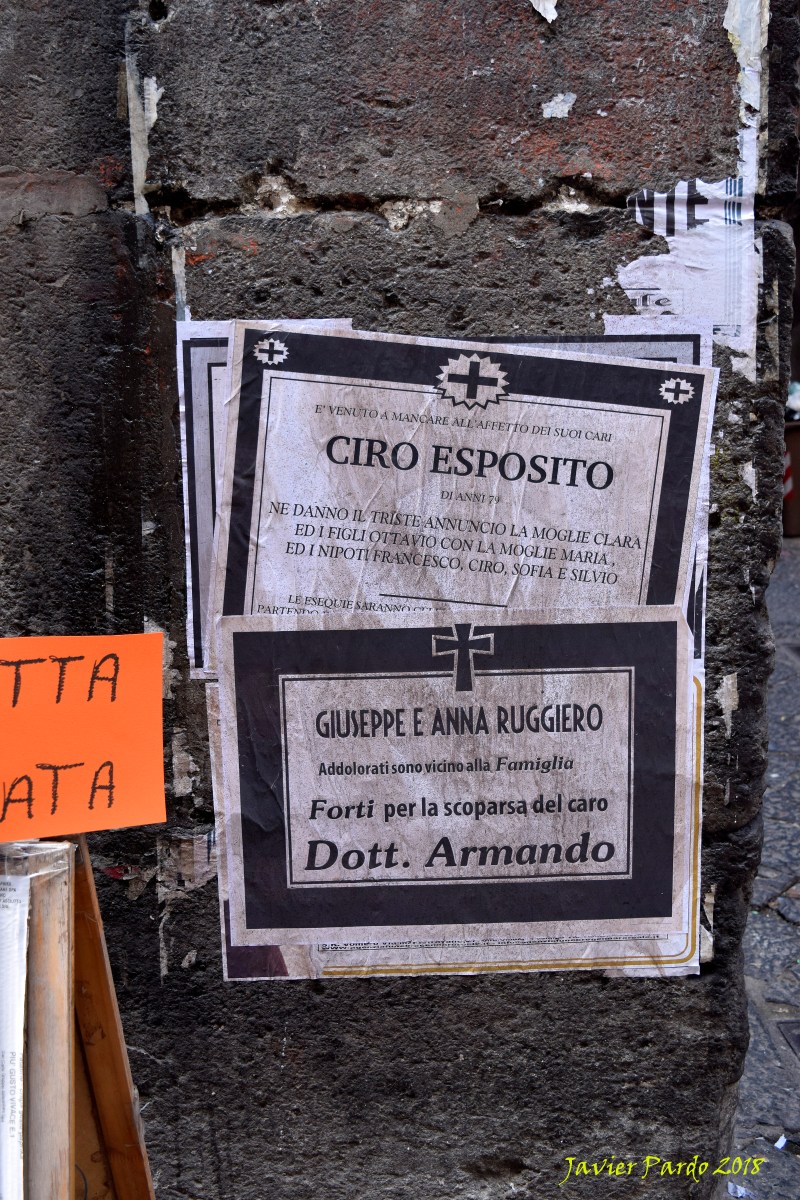 NIE
E' VENUTO A MANCARE ALL'AFFETTO DEI SUOI CARI
CIRO ESPOSITO
DI ANNI 79
NE DANNO IL TRISTE ANNUNCIO LA MOGLIE CLARA
ED I FIGLI OTTAVIO CON LA MOGLIE MARIA,
ED I NIPOTI FRANCESCO, CIRO, SOFIA E SILVIO
LE ESEQUIE SARANNO
PARTENDO
GIUSEPPE E ANNA RUGGIERO
Addolorati sono vicino alla Famiglia
Forti per la scoparsa del caro
Dott. Armando
TTA
ATA
PIU' GUSTO VIVACE E
Javier Pardo 2018